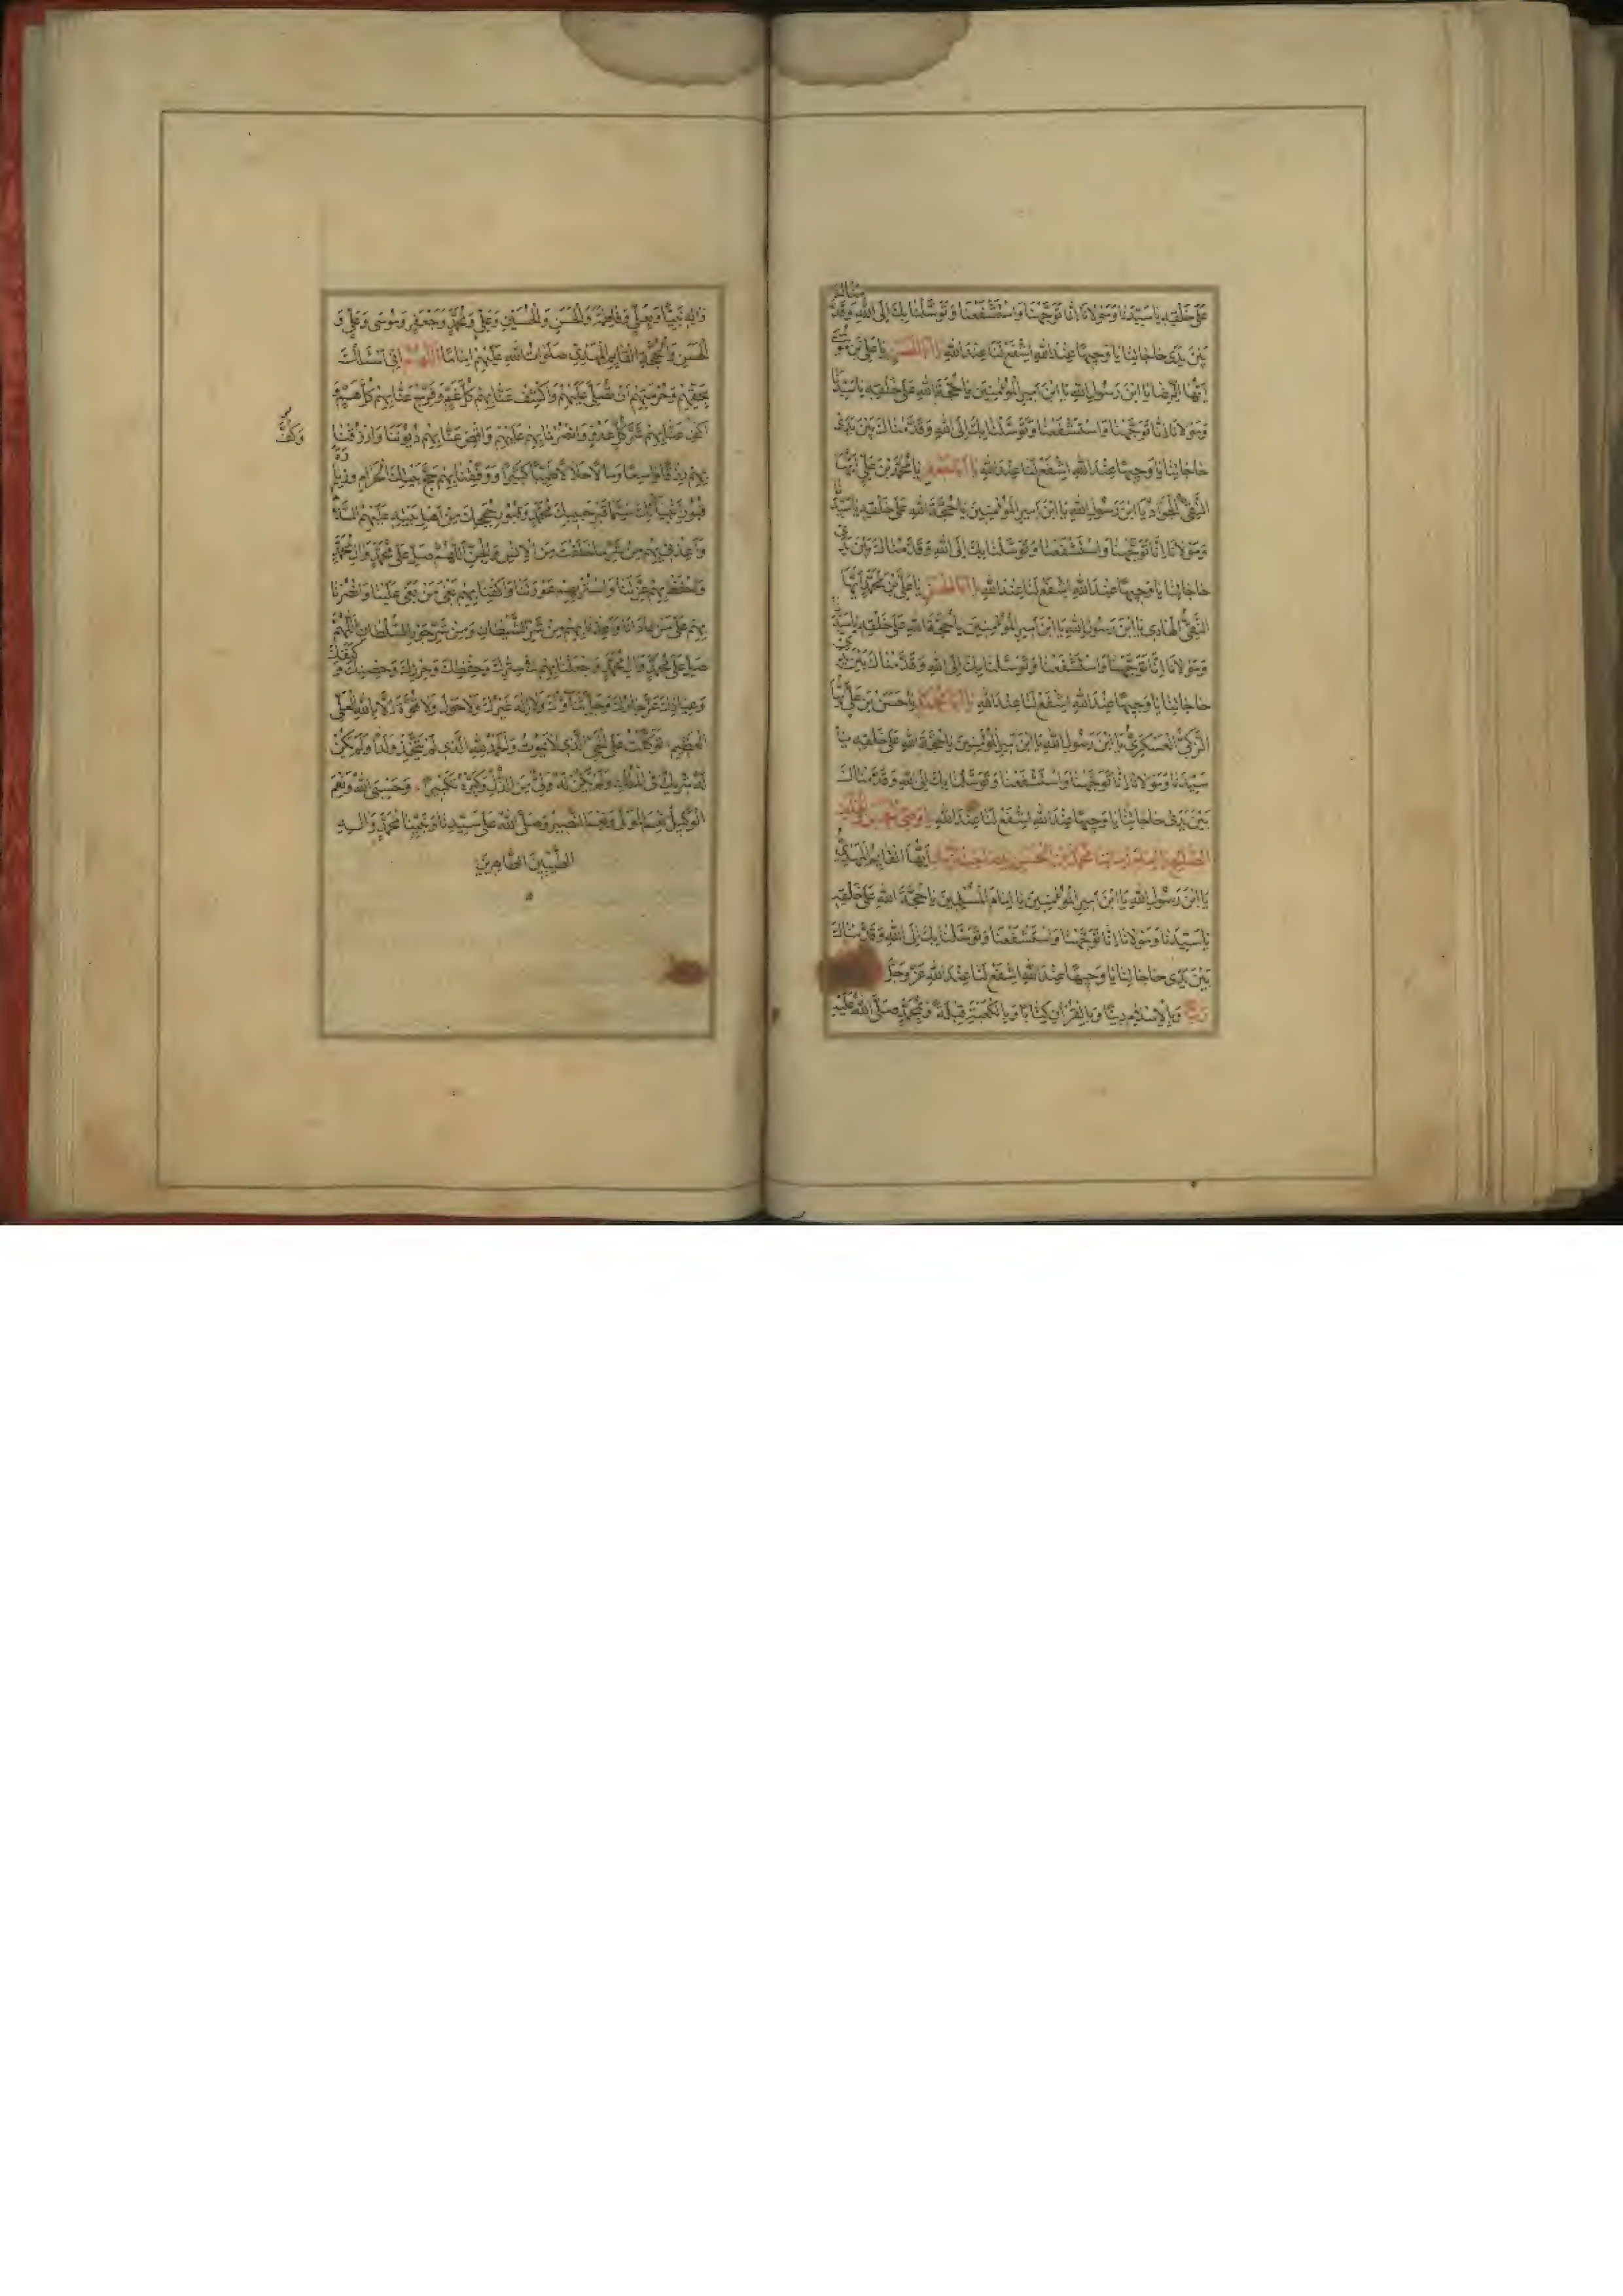 عَلى خَلْقِهِ يا سَيِّدَنا وَمَوْلانا اِنّا تَوَجَّهْنا وَاسْتَشْفَعْنا وَتَوَسَّلْنا بِكَ اِلَى اللهِ وَقَدَّمْناكَ
بَيْنَ يَدَى حاجاتِنا يا وَجيهًا عِنْدَ اللهِ اِشْفَعْ لَنا عِنْدَ اللهِ يا اَبَا الْحَسَنِ يا عَلِيَّ بْنَ مُوسى
اَيُّهَا الرِّضا يَا ابْنَ رَسُولِ اللهِ يَا ابْنَ اَميرِ الْمُؤْمِنينَ يا حُجَّةَ اللهِ عَلى خَلْقِهِ يا سَيِّدَنا
وَمَوْلانا اِنّا تَوَجَّهْنا وَاسْتَشْفَعْنا وَتَوَسَّلْنا بِكَ اِلَى اللهِ وَقَدَّمْناكَ بَيْنَ يَدَى
حاجاتِنا يا وَجيهًا عِنْدَ اللهِ اِشْفَعْ لَنا عِنْدَ اللهِ يا اَبا جَعْفَرٍ يا مُحَمَّدَ بْنَ عَلِيٍّ اَيُّهَا
التَّقِيُّ الْجَوادُ يَا ابْنَ رَسُولِ اللهِ يَا ابْنَ اَميرِ الْمُؤْمِنينَ يا حُجَّةَ اللهِ عَلى خَلْقِهِ يا سَيِّدَنا
وَمَوْلانا اِنّا تَوَجَّهْنا وَاسْتَشْفَعْنا وَتَوَسَّلْنا بِكَ اِلَى اللهِ وَقَدَّمْناكَ بَيْنَ يَدَى
حاجاتِنا يا وَجيهًا عِنْدَ اللهِ اِشْفَعْ لَنا عِنْدَ اللهِ يا اَبَا الْحَسَنِ يا عَلِيَّ بْنَ مُحَمَّدٍ اَيُّهَا
النَّقِيُّ الْهادى يَا ابْنَ رَسُولِ اللهِ يَا ابْنَ اَميرِ الْمُؤْمِنينَ يا حُجَّةَ اللهِ عَلى خَلْقِهِ يا سَيِّدَنا
وَمَوْلانا اِنّا تَوَجَّهْنا وَاسْتَشْفَعْنا وَتَوَسَّلْنا بِكَ اِلَى اللهِ وَقَدَّمْناكَ بَيْنَ يَدَى
حاجاتِنا يا وَجيهًا عِنْدَ اللهِ اِشْفَعْ لَنا عِنْدَ اللهِ يا اَبا مُحَمَّدٍ يا حَسَنَ بْنَ عَلِيٍّ اَيُّهَا
الزَّكِيُّ الْعَسْكَرِيُّ يَا ابْنَ رَسُولِ اللهِ يَا ابْنَ اَميرِ الْمُؤْمِنينَ يا حُجَّةَ اللهِ عَلى خَلْقِهِ يا
سَيِّدَنا وَمَوْلانا اِنّا تَوَجَّهْنا وَاسْتَشْفَعْنا وَتَوَسَّلْنا بِكَ اِلَى اللهِ وَقَدَّمْناكَ
بَيْنَ يَدَى حاجاتِنا يا وَجيهًا عِنْدَ اللهِ اِشْفَعْ لَنا عِنْدَ اللهِ يا وَصِيَّ الْحَسَنِ
مُحَمَّدَ بْنَ الْحَسَنِ اَيُّهَا الْقائِمُ الْمَهْدِيُّ
يَا ابْنَ رَسُولِ اللهِ يَا ابْنَ اَميرِ الْمُؤْمِنينَ يا اِمامَ الْمُسْلِمينَ يا حُجَّةَ اللهِ عَلى خَلْقِهِ
يا سَيِّدَنا وَمَوْلانا اِنّا تَوَجَّهْنا وَاسْتَشْفَعْنا وَتَوَسَّلْنا بِكَ اِلَى اللهِ وَقَدَّمْناكَ
بَيْنَ يَدَى حاجاتِنا يا وَجيهًا عِنْدَ اللهِ اِشْفَعْ لَنا عِنْدَ اللهِ عَزَّ وَجَلَّ
وَبِالْاِسْلامِ دينًا وَبِالْقُرْآنِ كِتابًا وَبِالْكَعْبَةِ قِبْلَةً وَبِمُحَمَّدٍ صَلَّى اللهُ عَلَيْهِ
وَآلِهِ نَبِيًّا وَبِعَلِيٍّ وَفاطِمَةَ وَالْحَسَنِ وَالْحُسَيْنِ وَعَلِيٍّ وَمُحَمَّدٍ وَجَعْفَرٍ وَمُوسى وَعَلِيٍّ وَ
الْحَسَنِ وَالْحُجَّةِ الْقائِمِ الْمَهْدِيِّ صَلَواتُ اللهِ عَلَيْهِمْ اِمامًا اَللّهُمَّ اِنّى اَسْئَلُكَ
بِحَقِّهِمْ وَحُرْمَتِهِمْ اَنْ تُصَلِّيَ عَلَيْهِمْ وَاكْشِفْ عَنّا بِهِمْ كُلَّ غَمٍّ وَفَرِّجْ عَنّا بِهِمْ كُلَّ هَمٍّ وَ
اكْفِ عَنّا بِهِمْ شَرَّ كُلِّ عَدُوٍّ وَانْصُرْنا بِهِمْ عَلَيْهِمْ وَاقْضِ عَنّا بِهِمْ دُيُونَنا وَارْزُقْنا
وَكُفَّ
بِهِمْ رِزْقًا واسِعًا وَمالًا حَلالًا طَيِّبًا كَثيرًا وَوَفِّقْنا بِهِمْ حَجَّ بَيْتِكَ الْحَرامِ وَزِيارَةَ
قُبُورِ اَنْبِيائِكَ سِيَّما قَبْرَ حَبيبِكَ مُحَمَّدٍ وَقُبُورِ حُجَجِكَ مِنْ اَهْلِ بَيْتِهِ عَلَيْهِمُ السَّلامُ
وَاَعِذْنى بِهِمْ مِنْ شَرِّ ما خَلَقْتَ مِنَ الْاِنْسِ وَالْجِنِّ اَللّهُمَّ صَلِّ عَلى مُحَمَّدٍ وَآلِ مُحَمَّدٍ
وَاحْفَظْ بِهِمْ عِزَّتَنا وَاسْتُرْ بِهِمْ عَوْرَتَنا وَاكْفِنا بِهِمْ بَغْيَ مَنْ بَغى عَلَيْنا وَانْصُرْنا
بِهِمْ عَلى مَنْ عادانا وَاَعِذْنا بِهِمْ مِنْ شَرِّ الشَّيْطانِ وَمِنْ شَرِّ جَوْرِ السُّلْطانِ اَللّهُمَّ
صَلِّ عَلى مُحَمَّدٍ وَآلِ مُحَمَّدٍ وَاجْعَلْنا بِهِمْ فى سِتْرِكَ وَحِفْظِكَ وَحِرْزِكَ وَحِصْنِكَ وَ كَنَفِكَ
وَعِياذِكَ عَزَّ جارُكَ وَجَلَّ ثَناؤُكَ وَلا اِلهَ غَيْرُكَ وَلا حَوْلَ وَلا قُوَّةَ اِلّا بِاللهِ الْعَلِيِّ
الْعَظيمِ تَوَكَّلْتُ عَلَى الْحَيِّ الَّذى لا يَمُوتُ وَالْحَمْدُ لِلهِ الَّذى لَمْ يَتَّخِذْ وَلَدًا وَلَمْ يَكُنْ
لَهُ شَريكٌ فِى الْمُلْكِ وَلَمْ يَكُنْ لَهُ وَلِيٌّ مِنَ الذُّلِّ وَكَبِّرْهُ تَكْبيرًا وَحَسْبِيَ اللهُ وَنِعْمَ
الْوَكيلُ نِعْمَ الْمَوْلى وَنِعْمَ النَّصيرُ وَصَلَّى اللهُ عَلى سَيِّدِنا وَنَبِيِّنا مُحَمَّدٍ وَآلِهِ
الطَّيِّبينَ الطّاهِرينَ